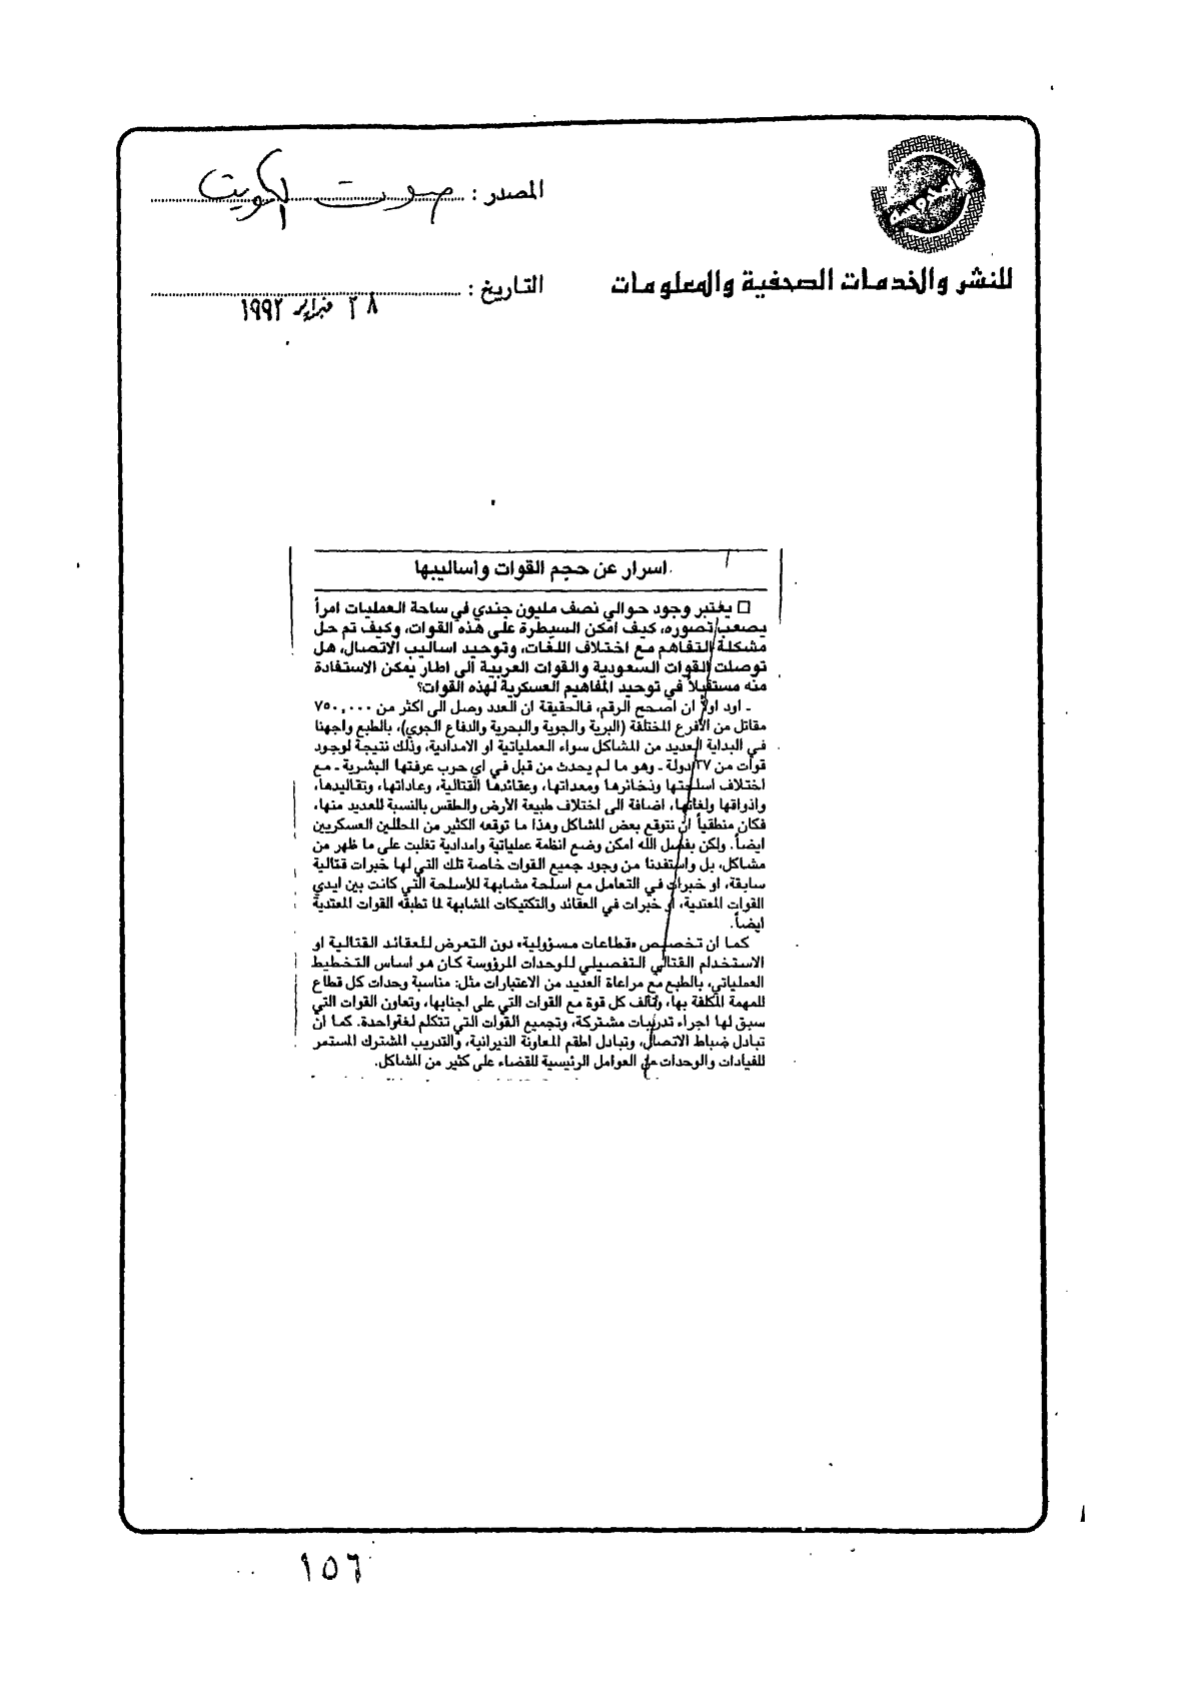 المصدر : صوت الكويت
للنشر والخدمات الصحفية والمعلومات
التاريخ : ٢٨ فبراير ١٩٩٢
اسرار عن حجم القوات واساليبها
□ يعتبر وجود حوالي نصف مليون جندي في ساحة العمليات امرأ
يصعب تصوره، كيف امكن السيطرة على هذه القوات، وكيف تم حل
مشكلة التفاهم مع اختلاف اللغات، وتوحيد اساليب الاتصال، هل
توصلت القوات السعودية والقوات العربية الى اطار يمكن الاستفادة
منه مستقبلاً في توحيد المفاهيم العسكرية لهذه القوات؟
ـ اود اولاً ان اصحح الرقم، فالحقيقة ان العدد وصل الى اكثر من ٧٥٠,٠٠٠
مقاتل من الأفرع المختلفة (البرية والجوية والبحرية والدفاع الجوي)، بالطبع واجهنا
في البداية العديد من المشاكل سواء العملياتية او الامدادية، وذلك نتيجة لوجود
قوات من ٣٧ دولة ـ وهو ما لم يحدث من قبل في اي حرب عرفتها البشرية ـ مع
اختلاف اسلحتها وذخائرها ومعداتها، وعقائدها القتالية، وعاداتها، وتقاليدها،
واذواقها ولغاتها، اضافة الى اختلاف طبيعة الأرض والطقس بالنسبة للعديد منها،
فكان منطقياً ان نتوقع بعض المشاكل وهذا ما توقعه الكثير من المحللين العسكريين
ايضاً. ولكن بفضل الله امكن وضع انظمة عملياتية وامدادية تغلبت على ما ظهر من
مشاكل، بل واستفدنا من وجود جميع القوات خاصة تلك التي لها خبرات قتالية
سابقة، او خبرات في التعامل مع اسلحة مشابهة للأسلحة التي كانت بين ايدي
القوات المعتدية، او خبرات في العقائد والتكتيكات المشابهة لما تطبقه القوات المعتدية
ايضاً.
كما ان تخصيص «قطاعات مسؤولية» دون التعرض للعقائد القتالية او
الاستخدام القتالي التفصيلي للوحدات المرؤوسة كان هو اساس التخطيط
العملياتي، بالطبع مع مراعاة العديد من الاعتبارات مثل: مناسبة وحدات كل قطاع
للمهمة المكلفة بها، وتآلف كل قوة مع القوات التي على اجنابها، وتعاون القوات التي
سبق لها اجراء تدريبات مشتركة، وتجميع القوات التي تتكلم لغة واحدة. كما ان
تبادل ضباط الاتصال، وتبادل اطقم المعاونة النيرانية، والتدريب المشترك المستمر
للقيادات والوحدات من العوامل الرئيسية للقضاء على كثير من المشاكل.
١٥٦